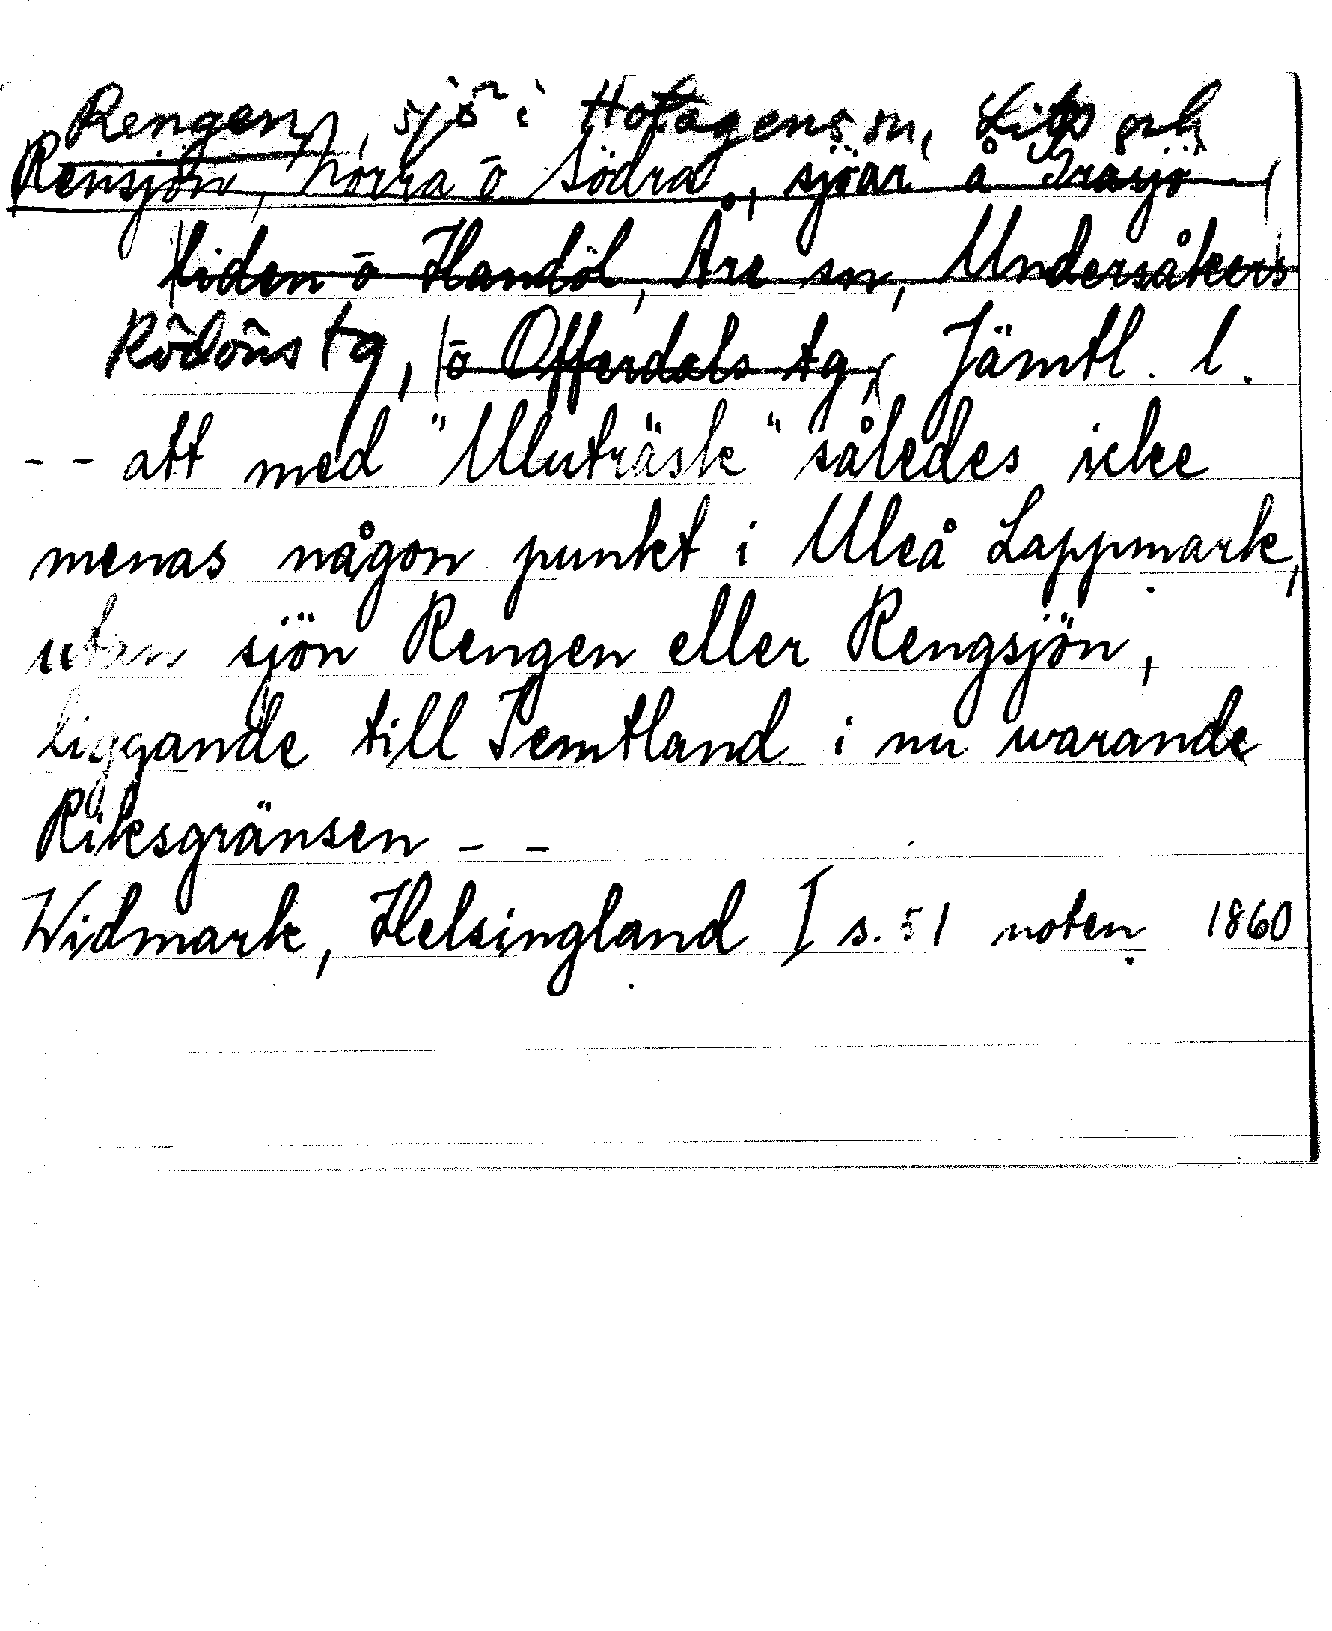 Rengen, sjö i Hotagens sn, Lits och
Rensjön, Norra o Södra, sjöar å
liden o Handöl, Åre sn, Undersåkers
Rödöns tg, o Offerdals tg, Jämtl. l.
- - att med "Uluträsk" således icke
menas någon punkt i Uleå Lappmark,
utan sjön Rengen eller Rengsjön,
liggande till Jemtland i nu warande
Riksgränsen - -
Widmark, Helsingland I s. 51 noten 1860